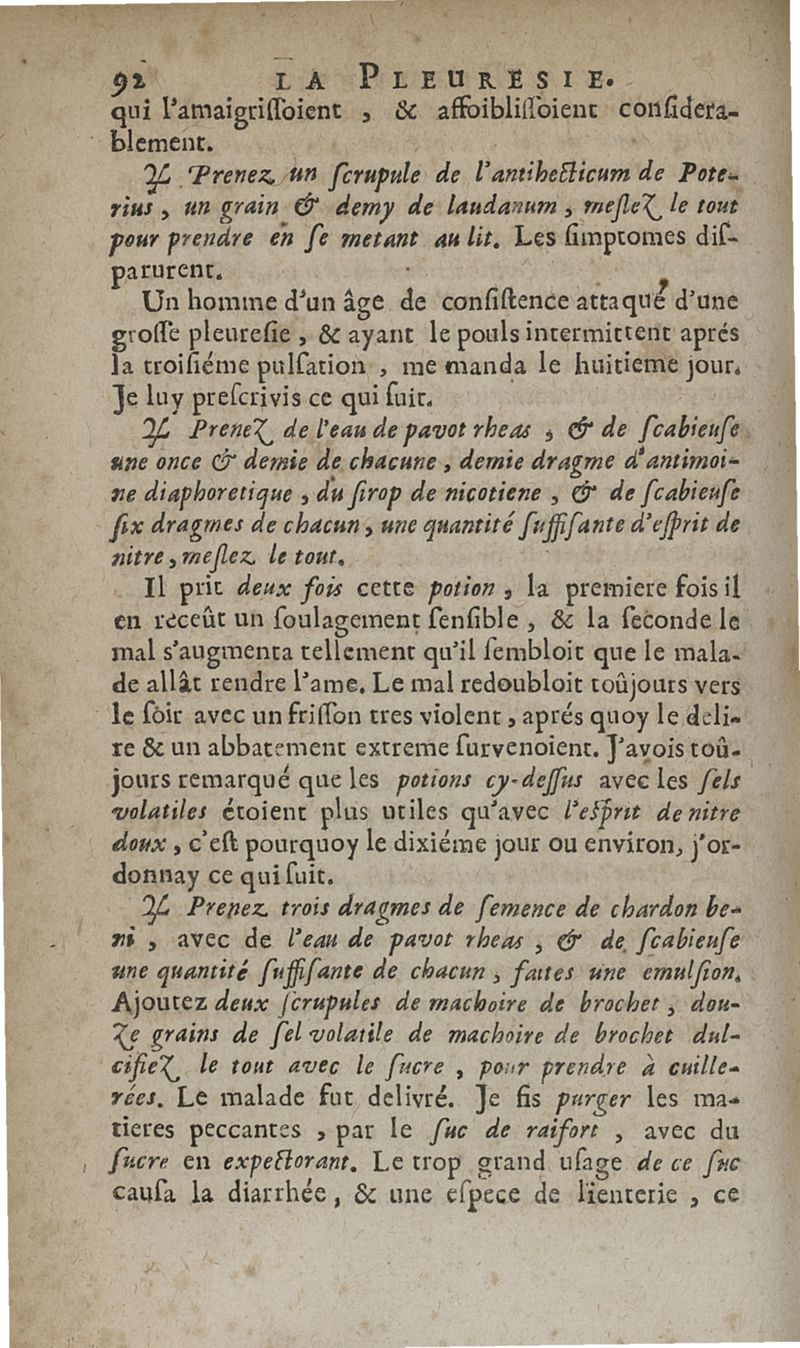 92 LA PLEURESIE.
qui l'amaigriſſoient , & affoibliſſoient conſidera-
blement.
℞ Prenez un ſcrupule de l'antihecticum de Pote-
rius , un grain & demy de laudanum , meſlez le tout
pour prendre en ſe metant au lit. Les ſimptomes diſ-
parurent.
Un homme d'un âge de conſiſtence attaqué d'une
groſſe pleureſie , & ayant le pouls intermittent aprés
la troiſiéme pulſation , me manda le huitieme jour.
Je luy preſcrivis ce qui ſuit.
℞ Prenez de l'eau de pavot rheas , & de ſcabieuſe
une once & demie de chacune , demie dragme d'antimoi-
ne diaphoretique , du ſirop de nicotiene , & de ſcabieuſe
ſix dragmes de chacun , une quantité ſuffiſante d'eſprit de
nitre , meſlez le tout.
Il prit deux fois cette potion , la premiere fois il
en receût un ſoulagement ſenſible , & la ſeconde le
mal s'augmenta tellement qu'il ſembloit que le mala-
de allât rendre l'ame. Le mal redoubloit toûjours vers
le ſoir avec un friſſon tres violent , aprés quoy le deli-
re & un abbatement extreme ſurvenoient. J'avois toû-
jours remarqué que les potions cy-deſſus avec les ſels
volatiles étoient plus utiles qu'avec l'eſprit de nitre
doux , c'eſt pourquoy le dixiéme jour ou environ, j'or-
donnay ce qui ſuit.
℞ Prenez trois dragmes de ſemence de chardon be-
ni , avec de l'eau de pavot rheas , & de ſcabieuſe
une quantité ſuffiſante de chacun , faites une emulſion.
Ajoutez deux ſcrupules de machoire de brochet , dou-
ze grains de ſel volatile de machoire de brochet dul-
cifiez le tout avec le ſucre , pour prendre à cuille-
rées. Le malade fut delivré. Je fis purger les ma-
tieres peccantes , par le ſuc de raifort , avec du
ſucre en expectorant. Le trop grand uſage de ce ſuc
cauſa la diarrhée , & une eſpece de lienterie , ce